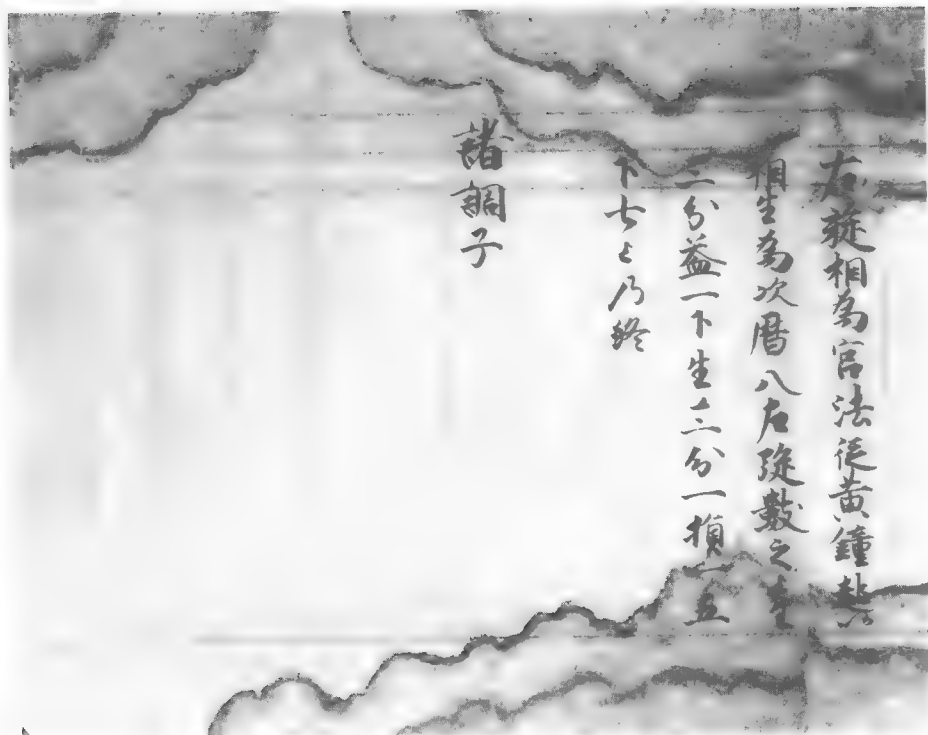 右旋相為宮法従黄鐘起以
相生為次暦八左旋數之上生
三分益一下生三分一損五
下七上乃終
諸調子